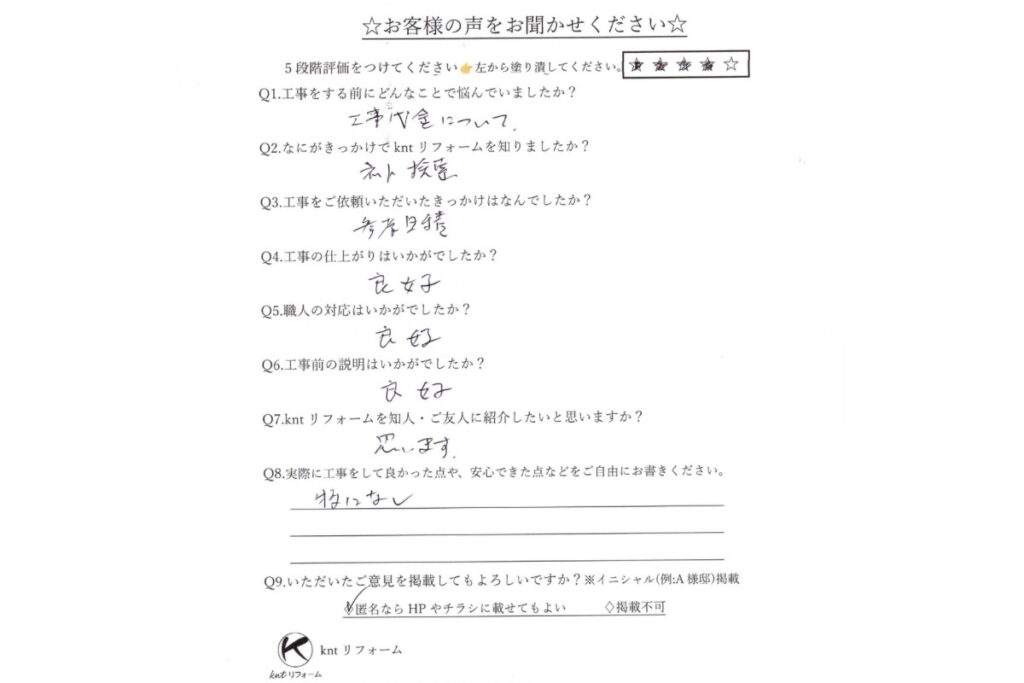 ☆お客様の声をお聞かせください☆
5段階評価をつけてください👉左から塗り潰してください。★★★★☆
Q1.工事をする前にどんなことで悩んでいましたか？
工事代金について.
Q2.なにがきっかけでkntリフォームを知りましたか？
ネット検索
Q3.工事をご依頼いただいたきっかけはなんでしたか？
Q4.工事の仕上がりはいかがでしたか？
良好
Q5.職人の対応はいかがでしたか？
良好
Q6.工事前の説明はいかがでしたか？
良好
Q7.kntリフォームを知人・ご友人に紹介したいと思いますか？
思います.
Q8.実際に工事をして良かった点や、安心できた点などをご自由にお書きください。
特になし
Q9.いただいたご意見を掲載してもよろしいですか？※イニシャル(例:A様邸)掲載
♢匿名ならHPやチラシに載せてもよい ♢掲載不可
K kntリフォーム
kntリフォーム